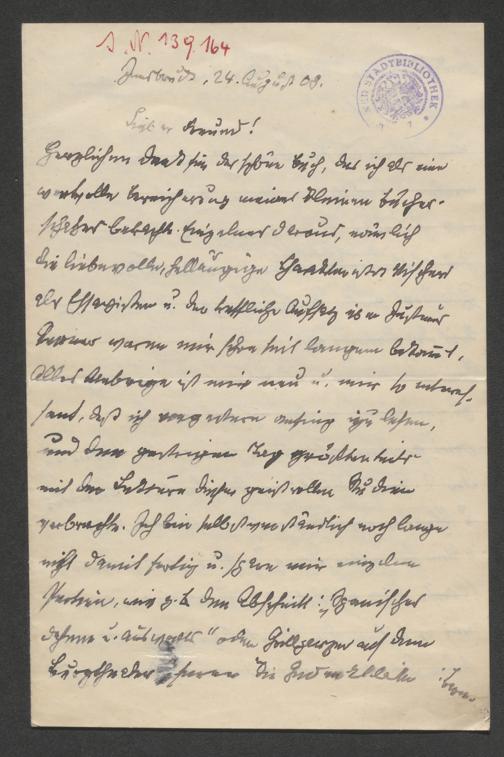 J. N. 139.164
Innsbruck, 24. August 08.
STADTBIBLIOTHEK
Lieber Freund!
Herzlichen Dank für das schöne Buch, das ich als eine
wertvolle Bereicherung meines kleinen Bücher-
schatzes betrachte. Einzelnes daraus, nämlich
die liebevolle, helläugige Charakteristik Vischers
als Essayisten u. der treffliche Aufsatz über Justinus
Kerner waren mir schon seit langem bekannt,
alles Uebrige ist mir neu u. mir so interes-
sant, daß ich vorgestern anfing zu lesen,
und den gestrigen Tag größtenteils
mit der Lektüre dieser geistvollen Studien
verbrachte. Ich bin selbstverständlich noch lange
nicht damit fertig u. spare mir einzelne
Partien, wie z. B. den Abschnitt: „Spanisches
daheim u. auswärts" oder Grillparzer auf dem
Burgtheater